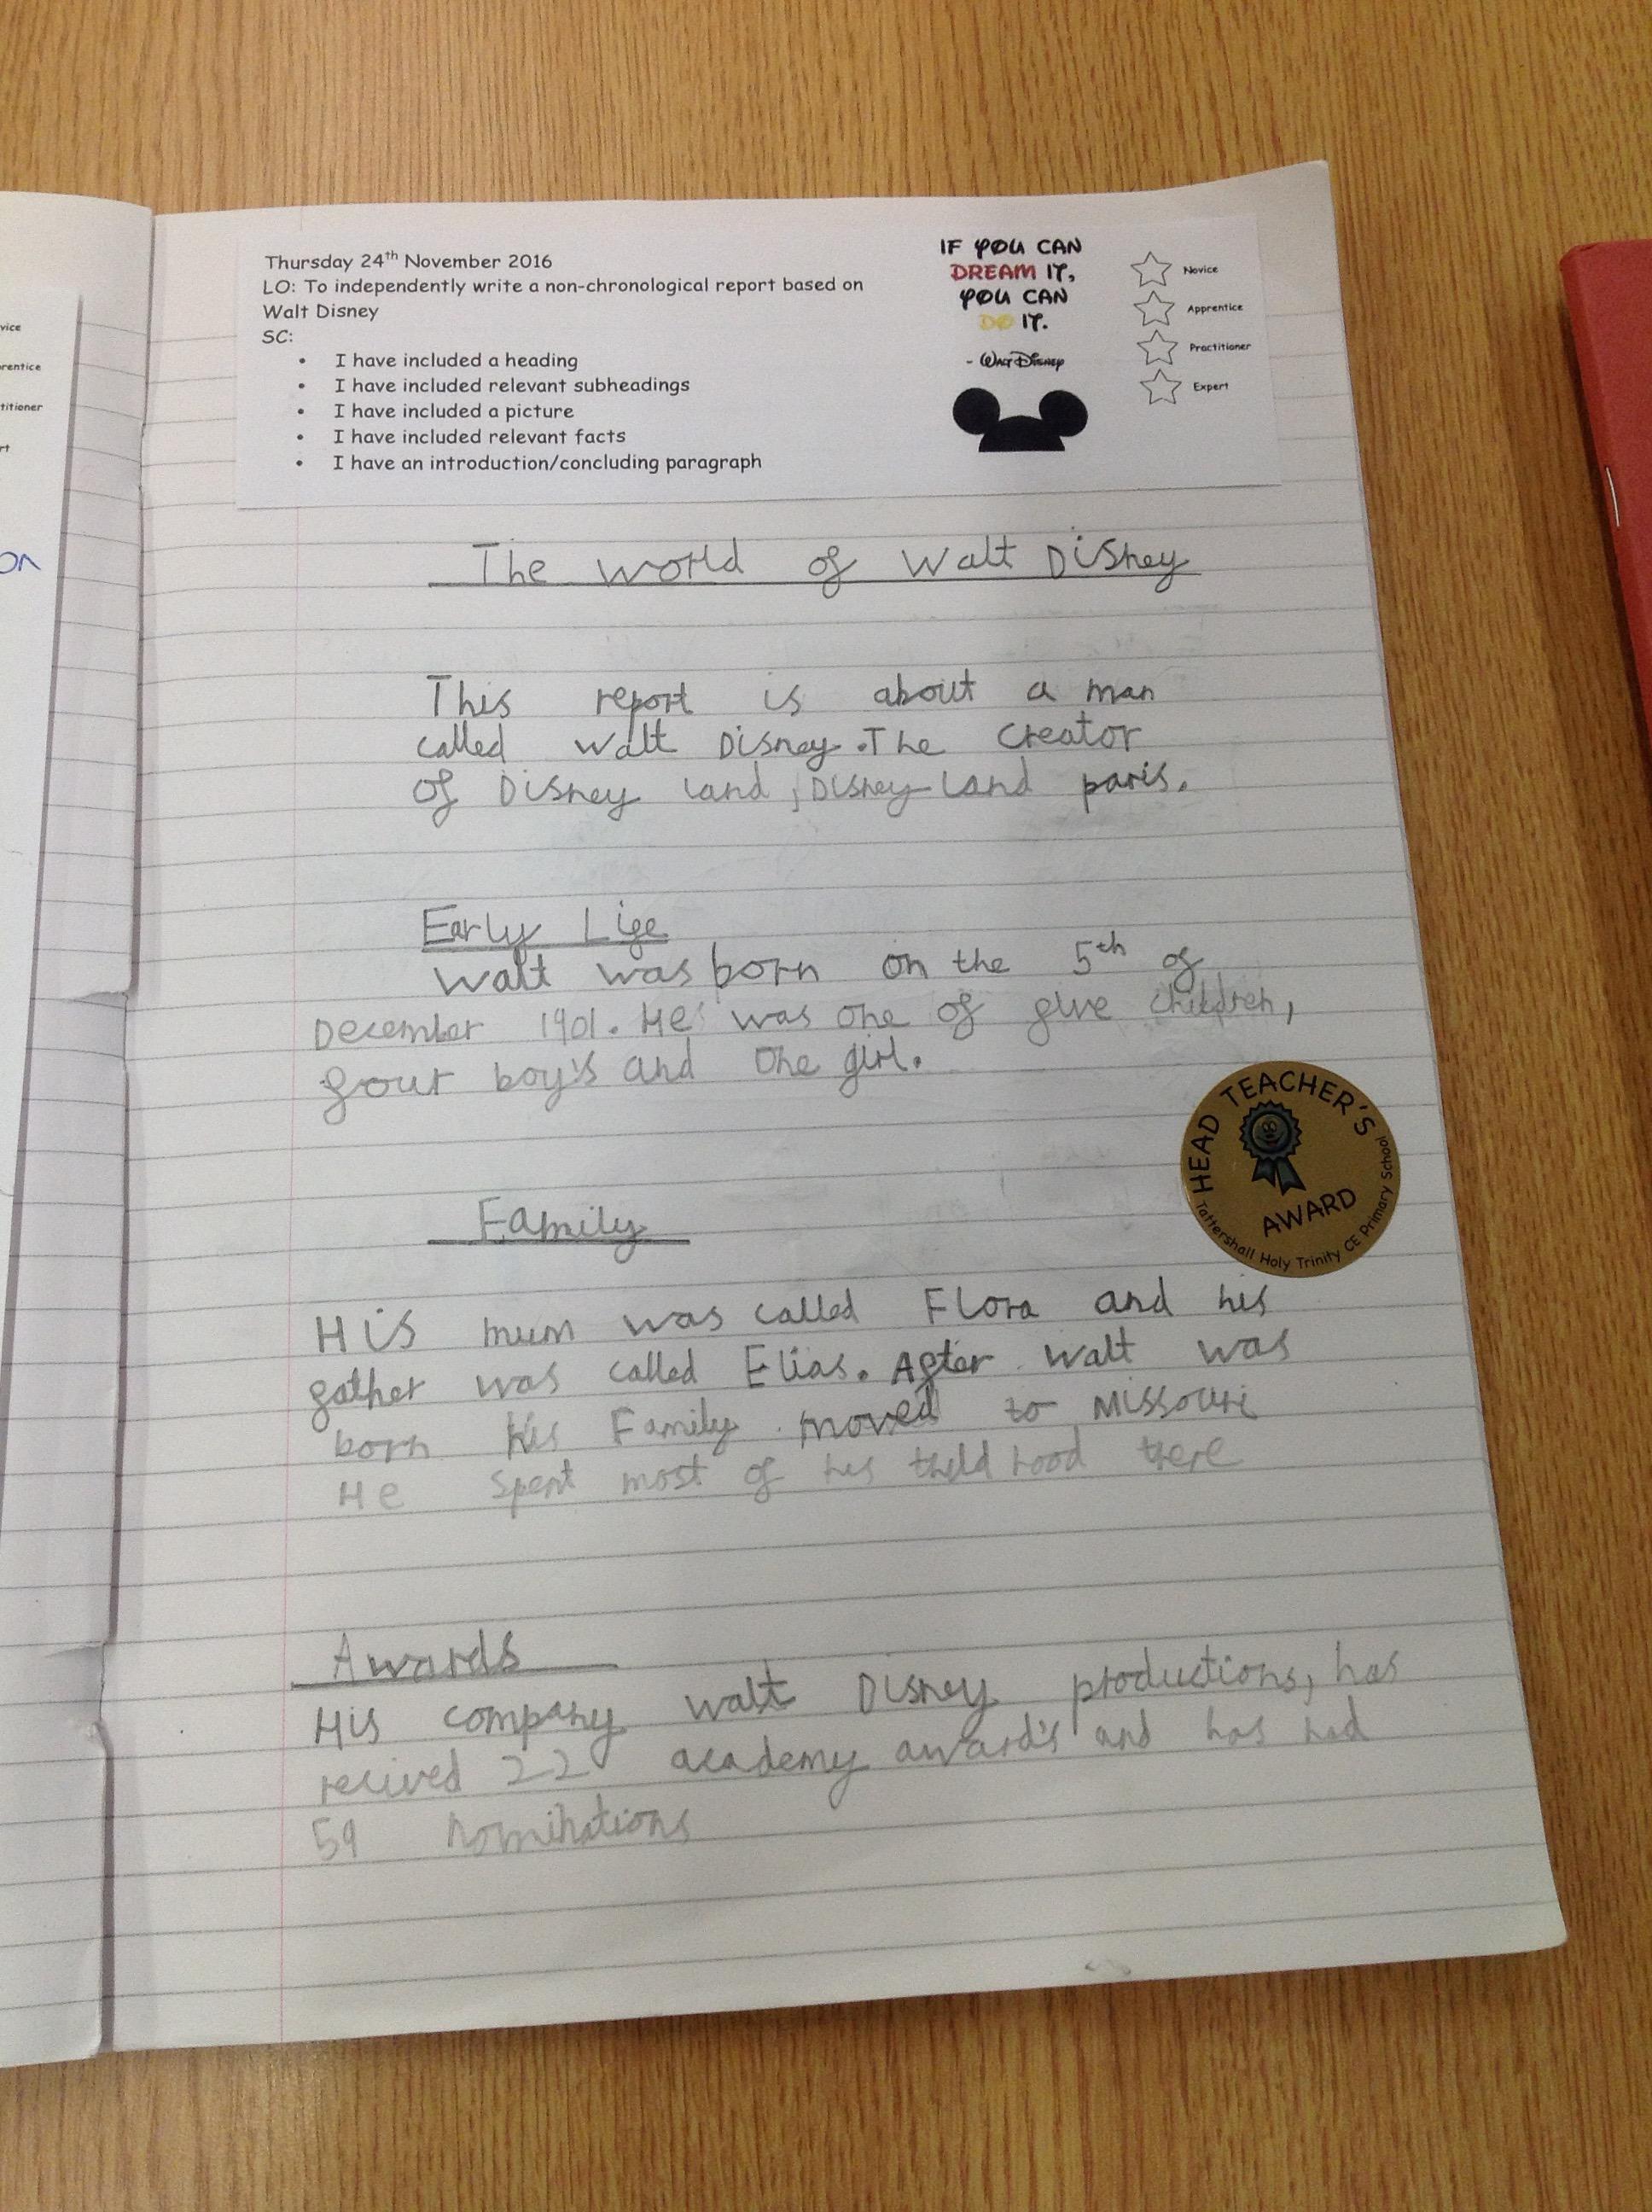 Thursday 24th November 2016
LO: To independently write a non-chronological report based on
Walt Disney
SC:
• I have included a heading
• I have included relevant subheadings
• I have included a picture
• I have included relevant facts
• I have an introduction/concluding paragraph
IF YOU CAN
DREAM IT,
YOU CAN
DO IT.
- WALT DISNEY
Novice
Apprentice
Practitioner
Expert
The world of Walt Disney
This report is about a man
called Walt Disney. The Creator
of Disney land, Disney Land paris.
Early Life
Walt was born on the 5th of
December 1901. He was one of five children,
four boy's and one girl.
HEAD TEACHER'S
AWARD
Tattershall Holy Trinity CE Primary School
Family
His mum was called Flora and his
father was called Elias. After Walt was
born his Family moved to Missouri
He spent most of his hood there
Awards
His company walt Disney productions, has
recived 22 academy award's and has had
59 Nominations
vice
rentice
titioner
rt
on